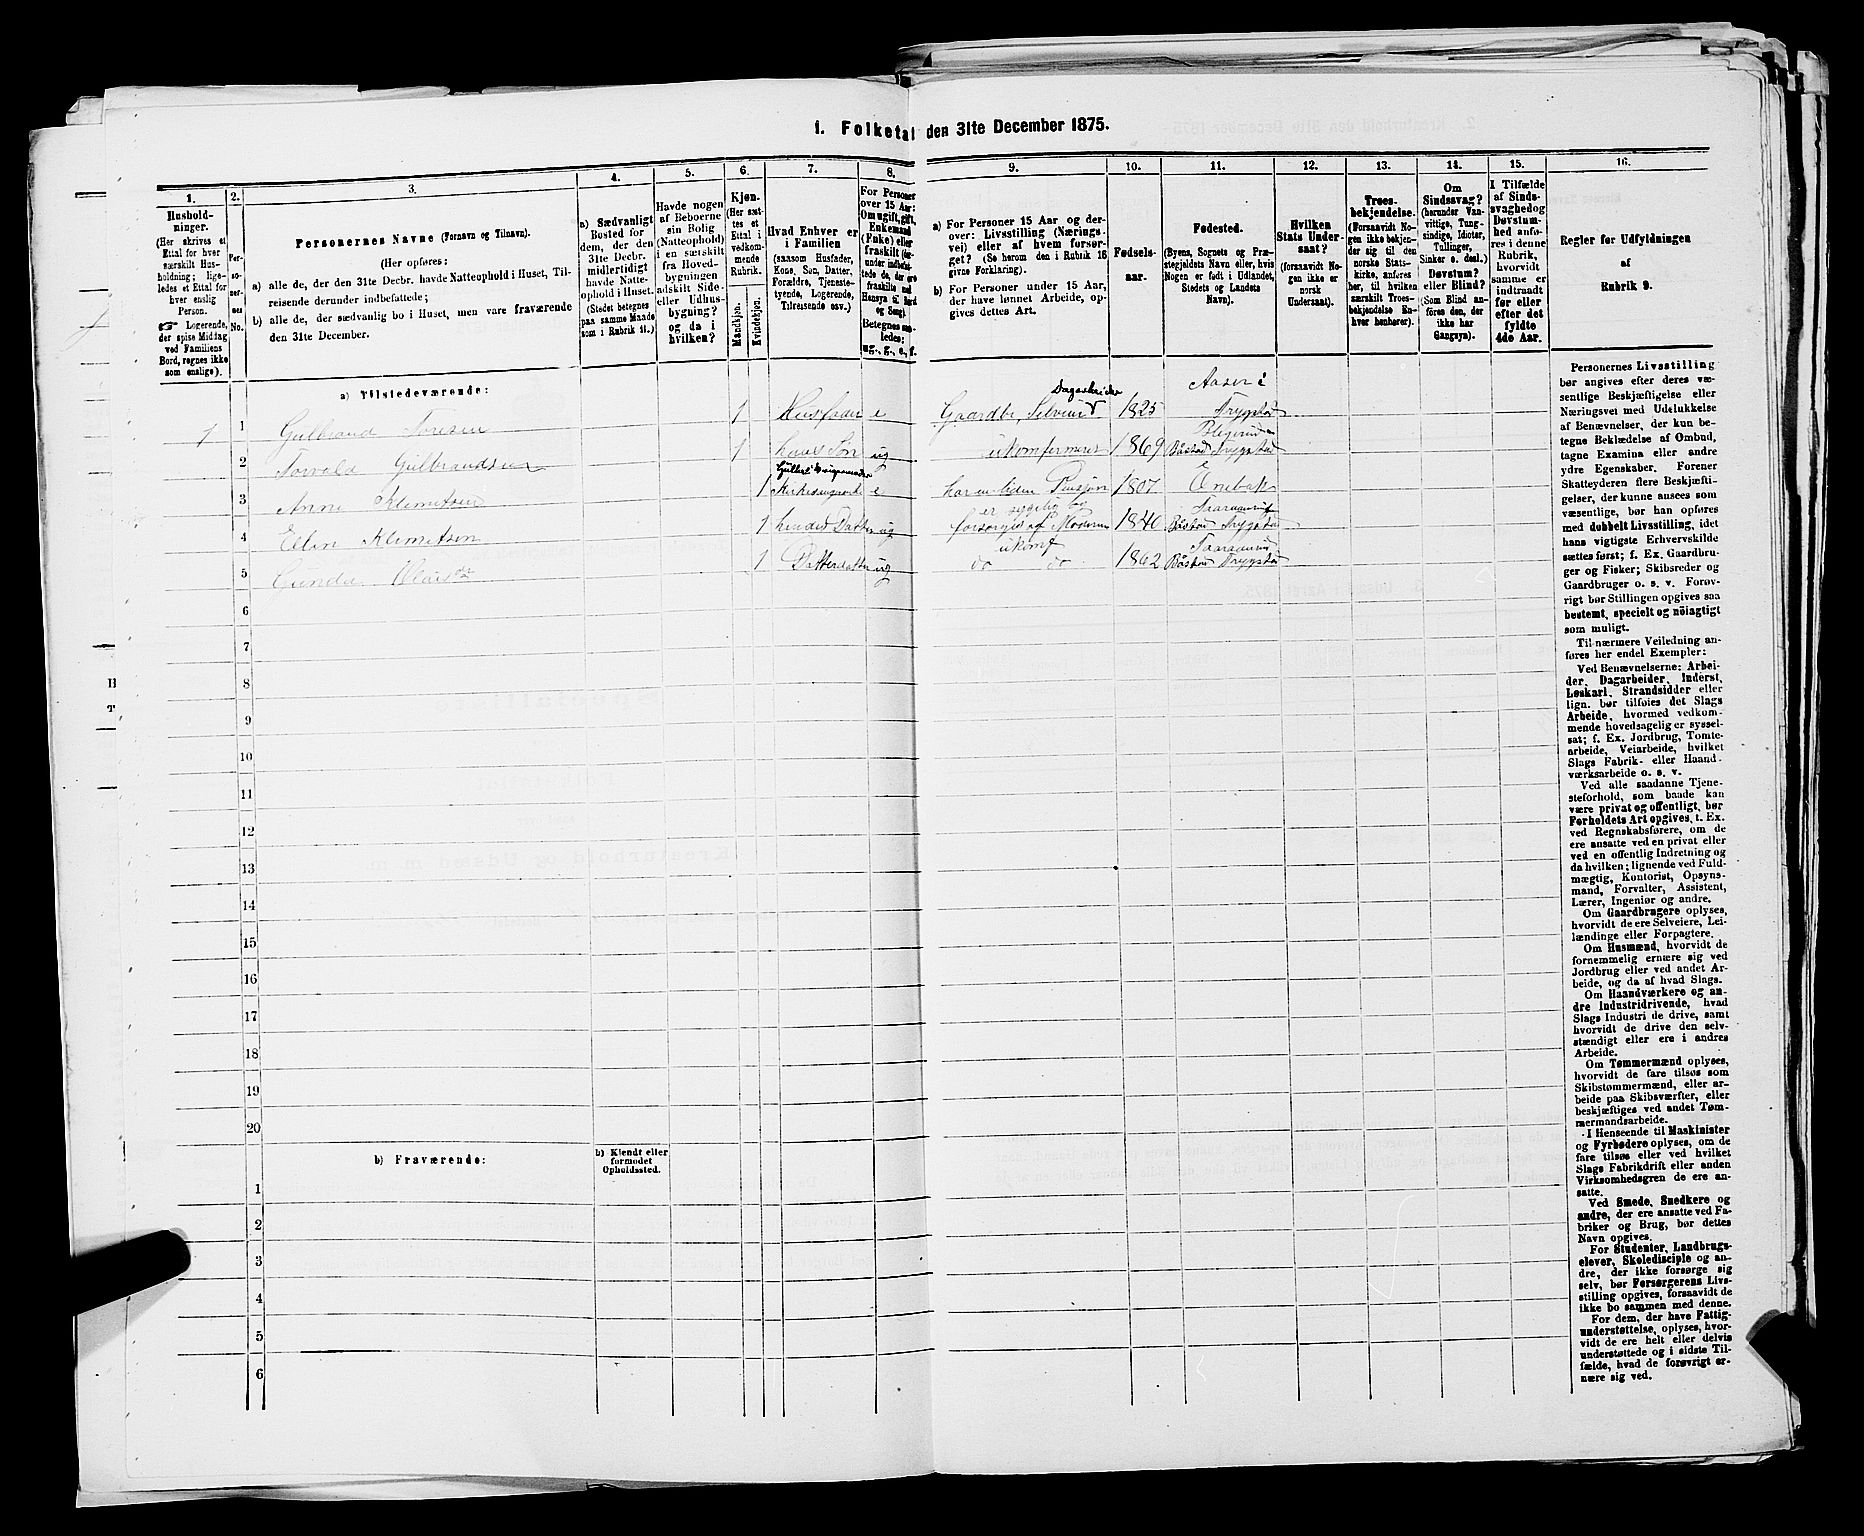 1. Folketal den 31te December 1875.
1.
2.
3.
4.
5.
6.
7.
8.
9.
10.
11.
12.
13.
14.
15.
16.
Hushold-
ninger.
(Her skrives et
Ettal for hver
særskilt Hus-
holdning; lige-
ledes et Ettal for
hver enslig
Person.
☞ Logerende,
der spise Middag
ved Familiens
Bord, regnes ikke
som enslige).
Per-
so-
ner-
nes
No.
Personernes Navne (Fornavn og Tilnavn).
(Her opføres:
a) alle de, der den 31te Decbr. havde Natteophold i Huset, Til-
reisende derunder indbefattede;
b) alle de, der sædvanlig bo i Huset, men vare fraværende
den 31te December.
a) Sædvanligt
Bosted for
dem, der den
31te Decbr.
midlertidigt
havde Natte-
ophold i Huset.
(Stedet betegnes
paa samme Maade
som i Rubrik 11.)
Havde nogen
af Beboerne
sin Bolig
(Natteophold)
i en særskilt
fra Hoved-
bygningen
adskilt Side-
eller Udhus-
bygning?
og da i
hvilken?
Kjøn.
(Her sæt-
tes et
Ettal i
vedkom-
mende
Rubrik.
Mandkjøn.
Kvindekjøn.
Hvad Enhver er
i Familien
(saasom Husfader,
Kone, Søn, Datter,
Forældre, Tjeneste-
tyende, Logerende,
Tilreisende osv.)
For Personer
over 15 Aar:
Om ugift, gift,
Enkemand
(Enke) eller
fraskilt (her-
under indbefat-
tede de, der ere
fraskilte med
Hensyn til Bord
og Seng).
Betegnes saa-
ledes:
ug., g., e., f.
a) For Personer 15 Aar og der-
over: Livsstilling (Nærings-
vei) eller af hvem forsør-
get? (Se herom den i Rubrik 16
givne Forklaring).
b) For Personer under 15 Aar,
der have lønnet Arbeide, op-
gives dettes Art.
Fødsels-
aar.
Fødested.
(Byens, Sognets og Præ-
stegjeldets Navn eller, hvis
Nogen er født i Udlandet,
Stedets og Landets
Navn).
Hvilken
Stats Under-
saat?
(forsaavidt No-
gen ikke er
norsk
Undersaat).
Troes-
bekjendelse.
(Forsaavidt No-
gen ikke bekjen-
der sig til den
norske Stats-
kirke, anføres
her, til hvilken
særskilt Troes-
bekjendelse En-
hver henhører).
Om
Sindssvag?
(herunder Van-
vittige, Tung-
sindige, Idioter,
Tullinger,
Sinker o. desl.)
Døvstum?
eller Blind?
(Som Blind an-
føres den, der
ikke har
Gangsyn).
I Tilfælde
af Sinds-
svaghed og
Døvstum-
hed anfø-
res i denne
Rubrik,
hvorvidt
samme er
indtraadt
før eller
efter det
fyldte
4de Aar.
Regler for Udfyldningen
af
Rubrik 9.
a) Tilstedeværende:
1 1 Gulbrand Toresen 1 Husfader e Gaardbr, Selveier Dagarbeider 1825 Aasen i Trygstad
2 Torvald Gulbrandsen 1 hans Søn ug ukonfermeret 1869 Båstad Trygstad
3 Anne Klemetsen 1 e har en liden Pensjon 1807 Enebak
4 Ellen Klemetsen 1 hendes Datter ug er sygelig bl forsørget af Moderen 1840 Båstad Trygstad
5 Gunda 1 Datterdatter ug ukonf do do 1862 Båstad Trygstad
6
7
8
9
10
11
12
13
14
15
16
17
18
19
20
b) Fraværende:
b) Kjendt eller
formodet
Opholdssted.
1
2
3
4
5
6
Personernes Livsstilling
bør angives efter deres væ-
sentlige Beskjæftigelse eller
Næringsvei med Udelukkelse
af Benævnelser, der kun be-
tegne Beklædelse af Ombud,
tagne Examina eller andre
ydre Egenskaber. Forener
Skatteyderen flere Beskjæfti-
gelser, der kunne ansees som
væsentlige, bør han opføres
med dobbelt Livsstilling, idet
hans vigtigste Erhvervskilde
sættes først; f. Ex. Gaardbru-
ger og Fisker; Skibsreder og
Gaardbruger o. s. v. Forøv-
rigt bør Stillingen opgives saa
bestemt, specielt og nöiagtigt
som muligt.
Til nærmere Veiledning an-
føres her endel Exempler:
Ved Benævnelserne: Arbei-
der, Dagarbeider, Inderst,
Løskarl, Strandsidder eller
lign. bør tilføies det Slags
Arbeide, hvormed vedkom-
mende hovedsagelig er syssel-
sat; f. Ex. Jordbrug, Tomte-
arbeide, Veiarbeide, hvilket
Slags Fabrik- eller Haand-
værksarbeide o. s. v.
Ved alle saadanne Tjene-
steforhold, som baade kan
være privat og offentligt, bør
Forholdets Art opgives, t. Ex.
ved Regnskabsførere, om de
ere ansatte ved en privat eller
ved en offentlig Indretning og
da hvilken; lignende ved Fuld-
mægtig, Kontorist, Opsyns-
mand, Forvalter, Assistent,
Lærer, Ingeniør og andre.
Om Gaardbrugere oplyses,
hvorvidt de ere Selveiere, Lei-
lændinge eller Forpagtere.
Om Husmænd, hvorvidt de
fornemmelig ernære sig ved
Jordbrug eller ved andet Ar-
beide, og da af hvad Slags.
Om Haandværkere og an-
dre Industridrivende, hvad
Slags Industri de drive, samt
hvorvidt de drive den selv-
stændigt eller ere i andres
Arbeide.
Om Tømmermænd oplyses,
hvorvidt de fare tilsøs som
Skibstømmermænd, eller ar-
beide paa Skibsværfter, eller
beskjæftiges ved andet Tøm-
mermandsarbeide.
I Henseende til Maskinister
og Fyrbødere oplyses, om de
fare tilsøs eller ved hvilket
Slags Fabrikdrift eller anden
Virksomhedsgren de ere an-
satte.
Ved Smede, Snedkere og
andre, der ere ansatte ved Fa-
briker og Brug, bør dettes
Navn opgives.
For Studenter, Landbrugs-
elever, Skoledisciple og an-
dre, der ikke forsørge sig
selv, bør Forsørgerens Livs-
stilling opgives, forsaavidt de
ikke bo sammen med denne.
For dem, der have Fattig-
understøttelse, oplyses, hvor-
vidt de ere helt eller delvis
understøttede og i sidste Til-
fælde, hvad de forøvrigt er-
nære sig ved.